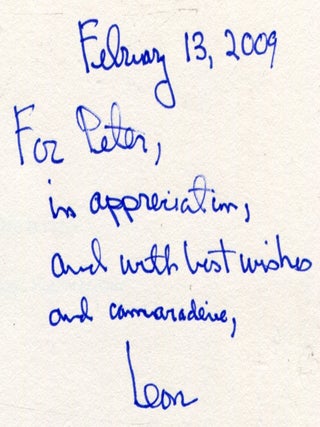 February 13, 2009
For Peter,
in appreciation,
and with best wishes
and camaraderie,
Leon